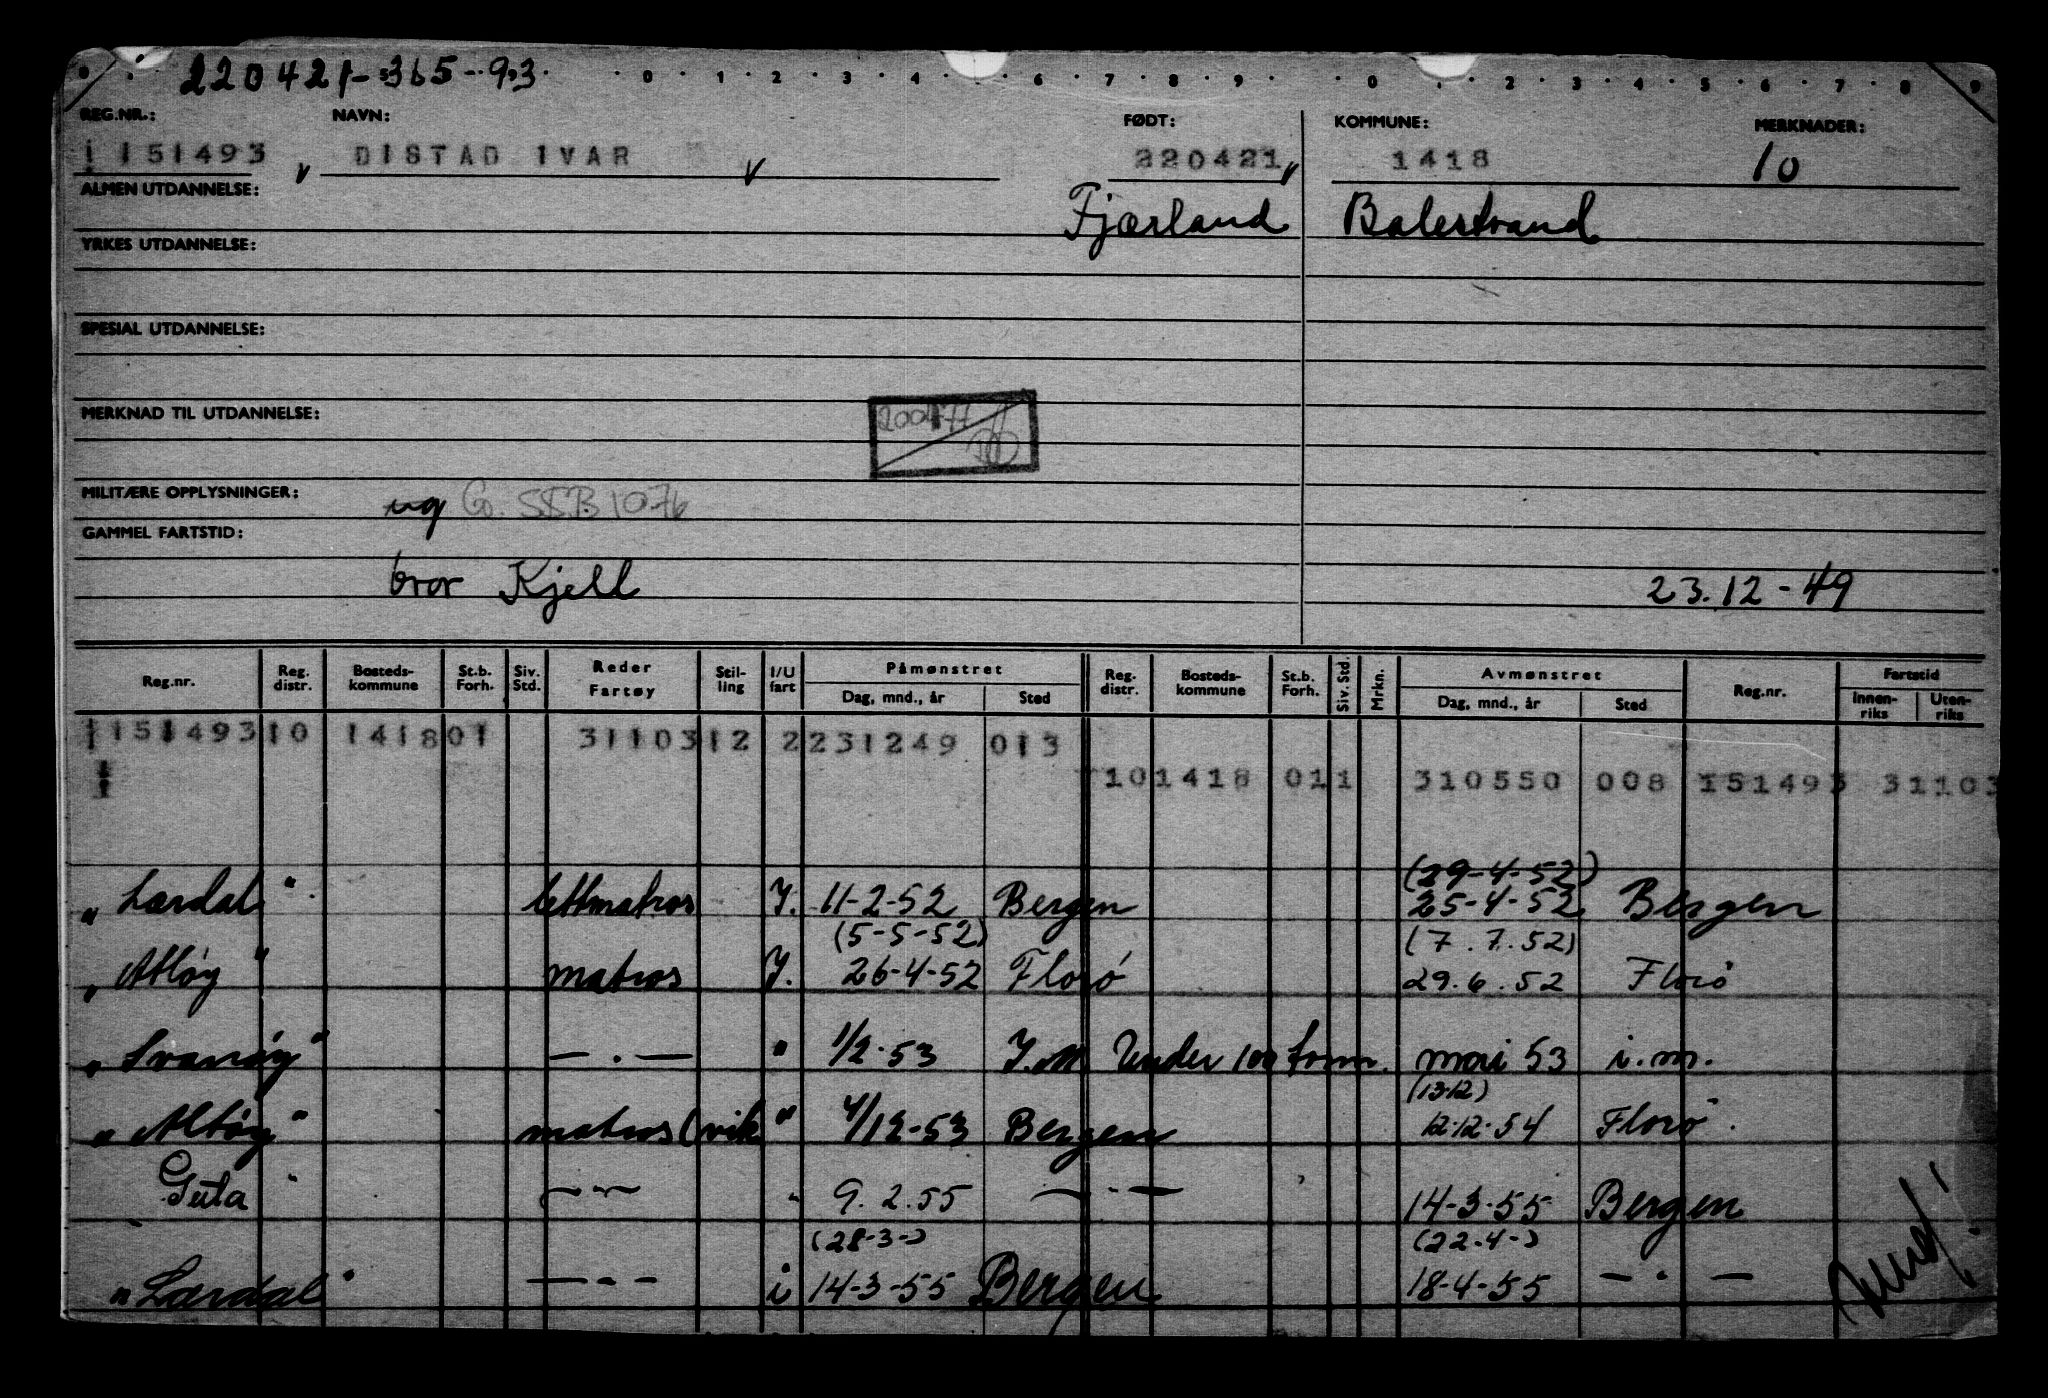 220421-365-93
0 1 2 3 4 6 7 8 9 0 2 3 4 5 6 7 8 9
REG.NR.: NAVN: FØDT: KOMMUNE: MERKNADER:
151493 DISTAD IVAR 220421 1418 10
ALMEN UTDANNELSE: Fjærland Balestrand
YRKES UTDANNELSE:
SPESIAL UTDANNELSE:
MERKNAD TIL UTDANNELSE:
200477
MILITÆRE OPPLYSNINGER: SSB 1076
GAMMEL FARTSTID:
bror Kjell 23.12-49
Reg.nr. Reg. distr. Bosteds-kommune St.b. Forh. Siv. Std. Reder Fartøy Stil-ling I/U fart Påmønstret Dag, mnd., år Sted Reg. distr. Bosteds-kommune St.b. Forh. Siv. Std. Mrkn. Avmønstret Dag, mnd., år Sted Reg.nr. Fartstid Innen-riks Uten-riks
151493 10 1418 01 31103 12 2 231249 013
10 1418 01 1 310550 008 151493 31103
(29-4-52)
"Lærdal" lettmatros I. 11-2-52 Bergen 25-4-52 Bergen
(5-5-52) (7.7.52)
"Atløy" matros I. 26-4-52 Florø 29.6.52 Florø
"Svanøy" — . — " 1/2-53 I.M. Under 100 tonn. mai 53 i.m.
(13.12)
"Atløy" matros (vik " 4/12-53 Bergen 12-12-54 Florø.
Guta" — " — " 9.2.55 — " — 14-3-55 Bergen
(28-3-) (22.4-)
"Lærdal" — " — i 14-3-55 Bergen 18-4-55 — " —